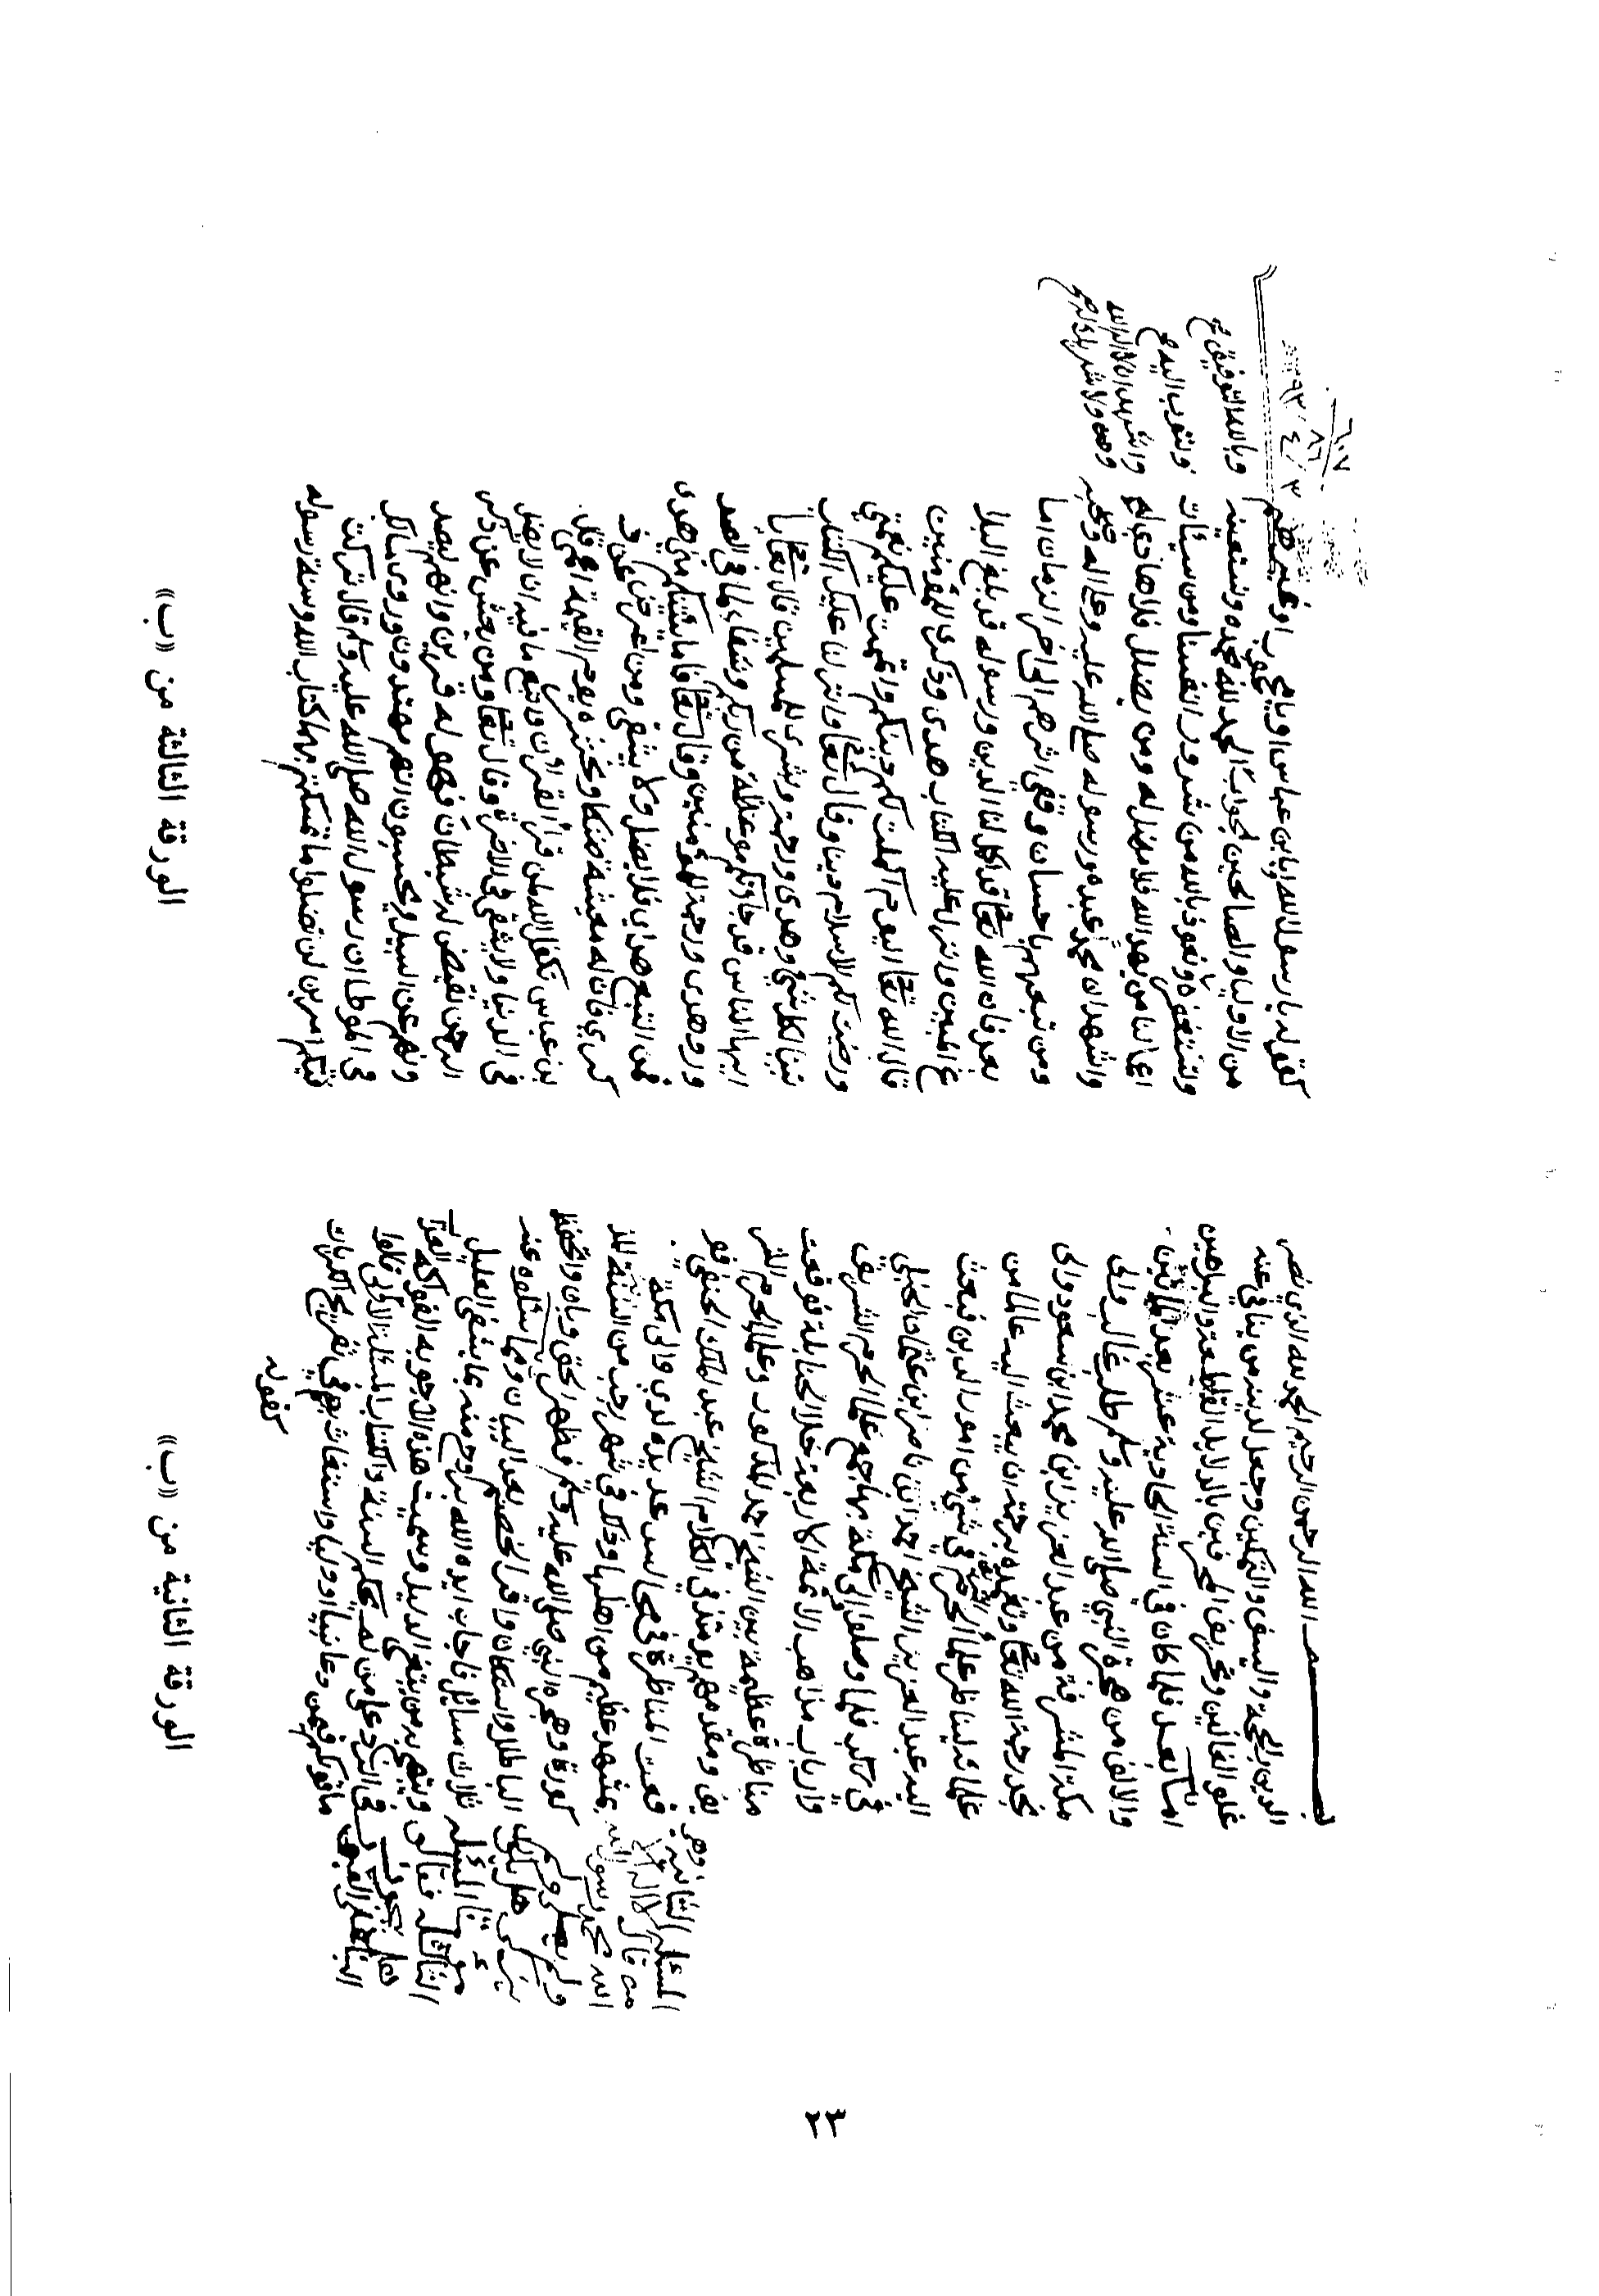 بسم الله الرحمن الرحيم الحمد لله الذي نصر
الدين بالحجة والسيف والتمكين وجعل لدينه من ينافي عنه
غلو الغالين وتحريف المحرفين بالدلايل القاطعة والبراهين
اما بعد فلما كان في السنة الحادية عشر بعد المأتين
والالف من هجرة النبي صلى الله عليه وسلم طلب غالب والي
مكة المشرفة من عبد العزيز ابن محمد ابن سعود والي
نجد رحمه الله تعالى وتغمده برحمته ان يبعث اليه عالما من
علمائه ليناظر علماء الحرم الشريف في شيء من امور الدين فبعث
اليه عبد العزيز الشيخ احمد ابن ناصر ابن عثمان الحنبلي
في ركب فلما وصلوا الى مكة بها جمع علماء الحرم الشريف
وارباب مذاهب الائمة الاربعة خلا الحنابلة فوقعت
مناظرة عظيمة بين الشيخ احمد المذكور وعلماء الحرم الشر
يف ومقدمهم يومئذ في الكلام الشيخ عبد الملك الحنفي فو
قعت المناظرة في مجالس عديدة لدي والي مكة
بمشهد عظيم من اهلها وذلك في شهر رجب من السنة المذ
كورة وهجرة النبي صلى الله عليه وسلم فظهر الحق وبان واتضح
الباطل واستكان واقر الخصم بعد البيان ومما سئلوه عنه
ثلاث مسائل فاجاب ايده الله بروح منه بما يشفي العليل
ويتهي به من يبتغي الدليل وسميت هذه الاجوبة الفواكه العذا
ب في الرد على من لم يحكم السنة والكتاب المسئلة الاولى قالوا
ما قولكم فيمن دعا نبيا او وليا واستغاث به في تفريج الكربات
كقوله
المسئلة الثانية وهي
من قال لا اله الا
الله محمد رسول الله
ولم يصلي ولم
يزكي هل يكون
مؤمنا المسئلة
الثالثة
هل يجوز
البناء على القبور
الورقة الثانية من «ب»
كقوله يا رسول الله او يا ابن عباس او يا محجوب او غيرهم
من الاولياء والصالحين الجواب الحمد لله نحمده ونستعينه
ونستغفره ونعوذ بالله من شرور انفسنا ومن سيئات
اعمالنا من يهد الله فلا مضل له ومن يضلل فلا هادي له
واشهد ان محمدا عبده ورسوله صلى الله عليه وعلى اله وصحبه
ومن تبعهم باحسان وقفى اثرهم الى اخر الزمان اما
بعد فان الله تعالى قد اكمل لنا الدين ورسوله قد بلغ البلا
غ المبين وانزل عليه الكتاب هدى وذكرى للمؤمنين
قال الله تعالى اليوم اكملت لكم دينكم واتممت عليكم نعمتي
ورضيت لكم الاسلام دينا وقال تعالى وانزلنا عليك الكتاب
تبيانا لكل شيء وهدى ورحمة وبشرى للمسلمين قال تعالى يا
ايها الناس قد جاءتكم موعظة من ربكم وشفاء لما في الصد
ور وهدى ورحمة للمؤمنين وقال تعالى فاما يأتينكم مني هدى
فمن اتبع هداي فلا يضل ولا يشقى ومن اعرض عن ذ
كري فان له معيشة ضنكا ونحشره يوم القيمة اعمى قال
بن عباس تكفل الله لمن قرأ القرآن واتبع ما فيه ان لا يضل
في الدنيا ولا يشقى في الاخرة وقال تعالى ومن يعش عن ذكر
الرحمن نقيض له شيطانا فهو له قرين وانهم ليصد
ونهم عن السبيل ويحسبون انهم مهتدون وروى مالك
في الموطا ان رسول الله صلى الله عليه وسلم قال تركت
فيكم امرين لن تضلوا ما تمسكتم بهما كتاب الله وسنة رسوله
وبالله التوفيق
ونتوب اليه
واشهد ان لا اله الا الله
وحده لا شريك له
الورقة الثالثة من «ب»
٢٣